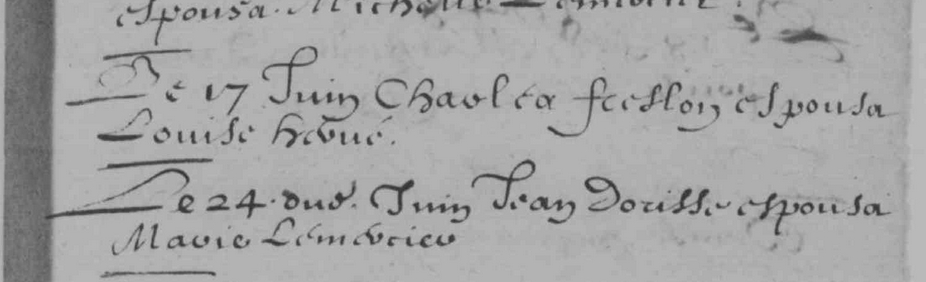 espousa Michelle
Le 17 Juin Charles feeslon espousa
Louise herué.
Le 24. dud. Juin Jean Dorisse espousa
Marie Lemercier